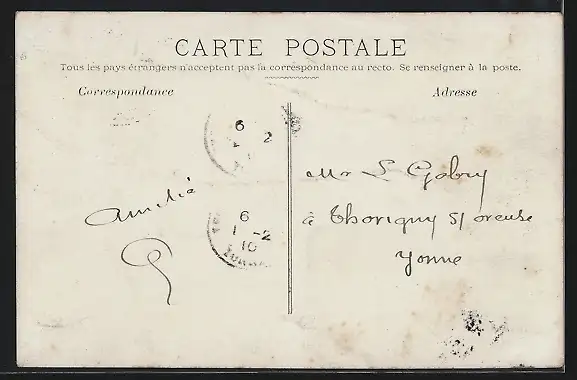 CARTE POSTALE
Tous les pays étrangers n'acceptent pas la correspondance au recto. Se renseigner à la poste.
Correspondance
Adresse
6
2
Mr L Gobry
Amitié
à Thorigny s/ oreuse
6
1 -2
10
Yonne